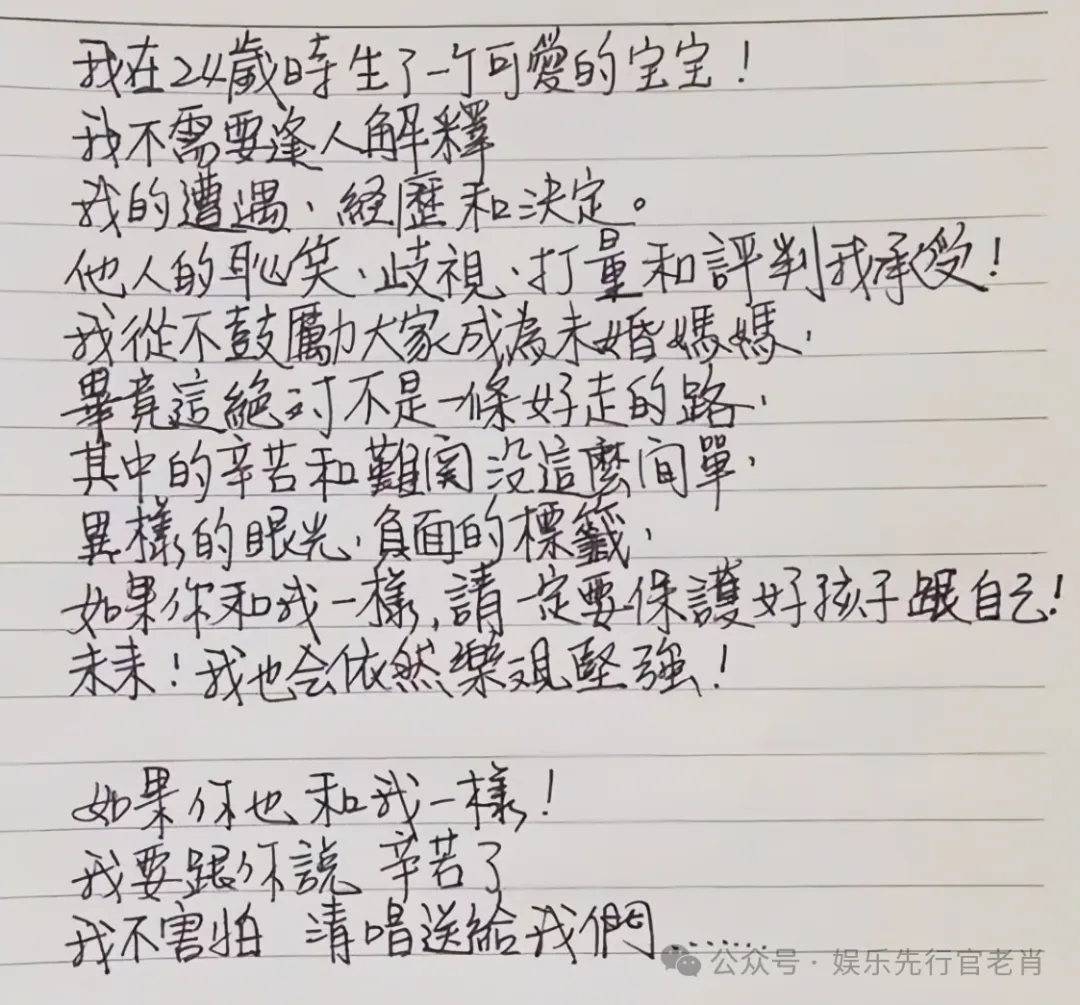 我在24歲時生了一个可愛的宝宝!
我不需要逢人解釋
我的遭遇、経歷和決定。
他人的恥笑、歧視、打量和評判我承受!
我從不鼓勵大家成為未婚媽媽、
畢竟這絕対不是一條好走的路、
其中的辛苦和難関没這麼间單、
異樣的眼光、負面的標籤、
如果你和我一樣,請一定要保護好孩子跟自己!
未来!我也会依然樂观堅強!
如果你也和我一樣!
我要跟你說 辛苦了
我不害怕 清唱送給我們……
公众号·娱乐先行官老肖